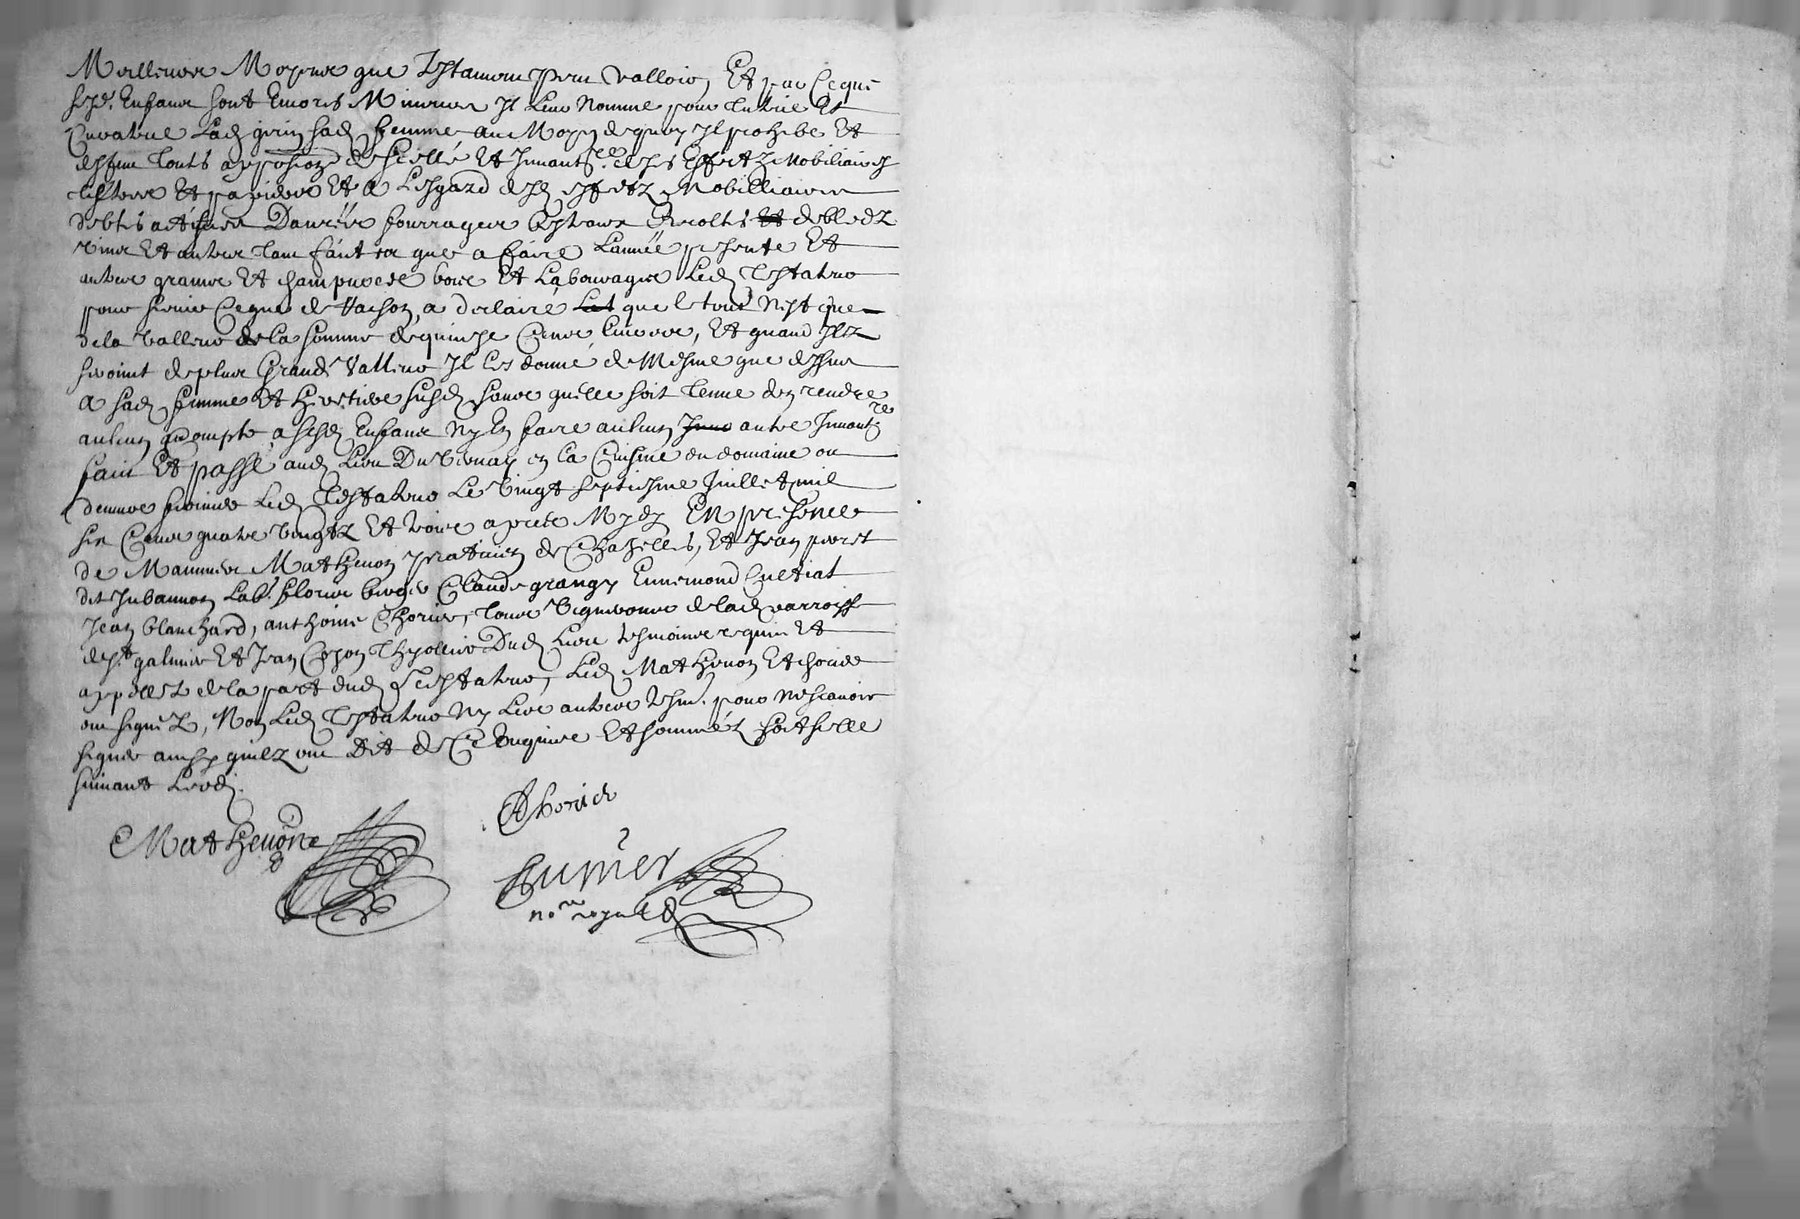 Meilleure Moyene que Testament peut valloir Et par ce que
sesd. Enfans sont Encores Mineurs Il Leur Nomme pour Tutrice Et
Curatrice Lad. girin sad. femme au Moyen de quoy Il prohibe Et
deffen touts apposions de scellé Et Inventre. de ses Effectz Mobiliaires
tiltres Et papiers Et a L'esgard desd. effetz Mobilliaires
debtes actifves Danrées fourrages bestiaux Recoltes Et de bledz
vins Et autres tant faictes que a faire L'année presente Et
autres grains Et champs de bois Et Labourages Led. Testateur
pour servir ce que de raison, a declairé Let que le tout N'est que
de la valleur de la somme de quinze Cens Livres, Et quand Ilz
seroint de plus Grande Valleur Il les donne de Mesme que dessus
A sad. femme Et heritiere susd. sans quelle soit tenue den rendre
aulcun Compte a sesd. Enfans Ny En faire aulcun Inve autre Inventre
fait Et passé aud. Lieu Du Vernay en la Cuisine du domaine ou
demeure fermier Led. Testateur Le Vingt septiesme Juillet mil
six Cens quatre vingtz Et trois apres Mydy En presence
de Me Mathevon praticien de Chazelles, Et Jean poret
dit Jubannon Labr. Claude grangy Ennemond Cultiat
Jean blanchard, anthoine Chorier, tous Vignerons de lad. parroisse
de St. galmier Et Jean Tholliere Dud. Lieu tesmoings requis Et
appellez de la part dud. Testateur, Led. Mathevon Et Chorier
ont signéz, Non Led. Testateur Ny Les autres tesm. pour Ne scavoir
signer ainsy quilz ont Dit de Ce Enquis Et Sommez soit scellé
suivant Ledi.
Mathevon
Chorier
no.re royal